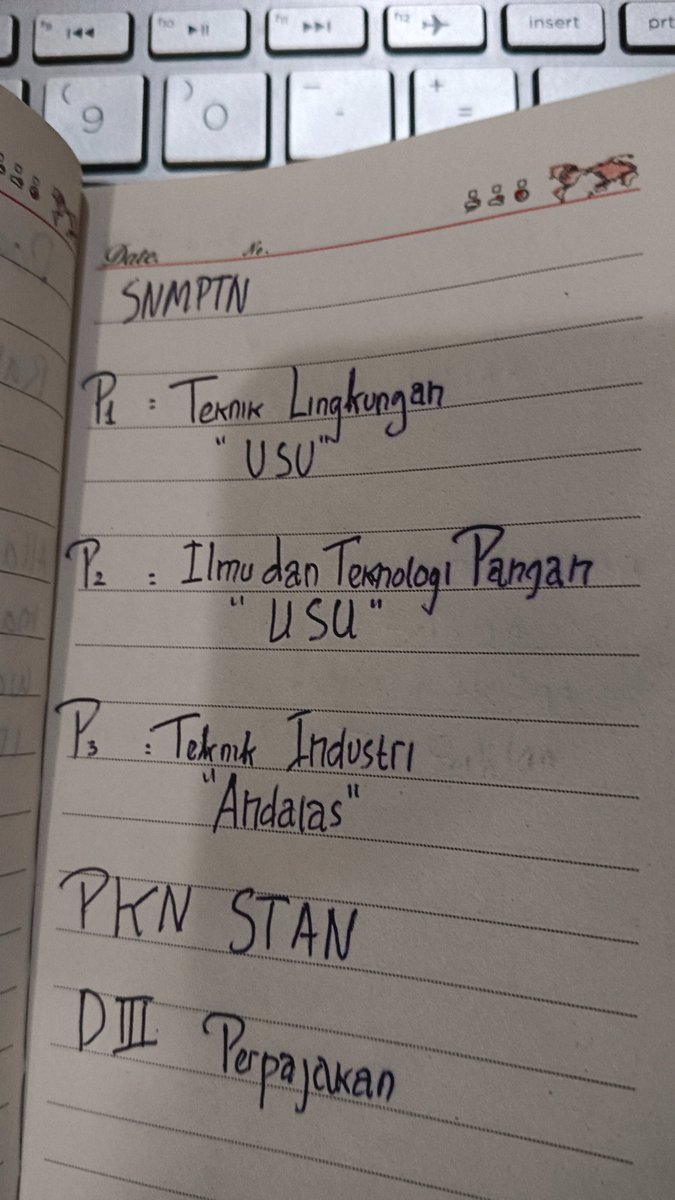 f9
f10
f11
f12
insert
prt
(
9
)
0
-
+
=
Date.
No.
SNMPTN
P1 : Teknik Lingkungan
"USU"
P2 : Ilmu dan Teknologi Pangan
"USU"
P3 : Teknik Industri
"Andalas"
PKN STAN
D III Perpajakan